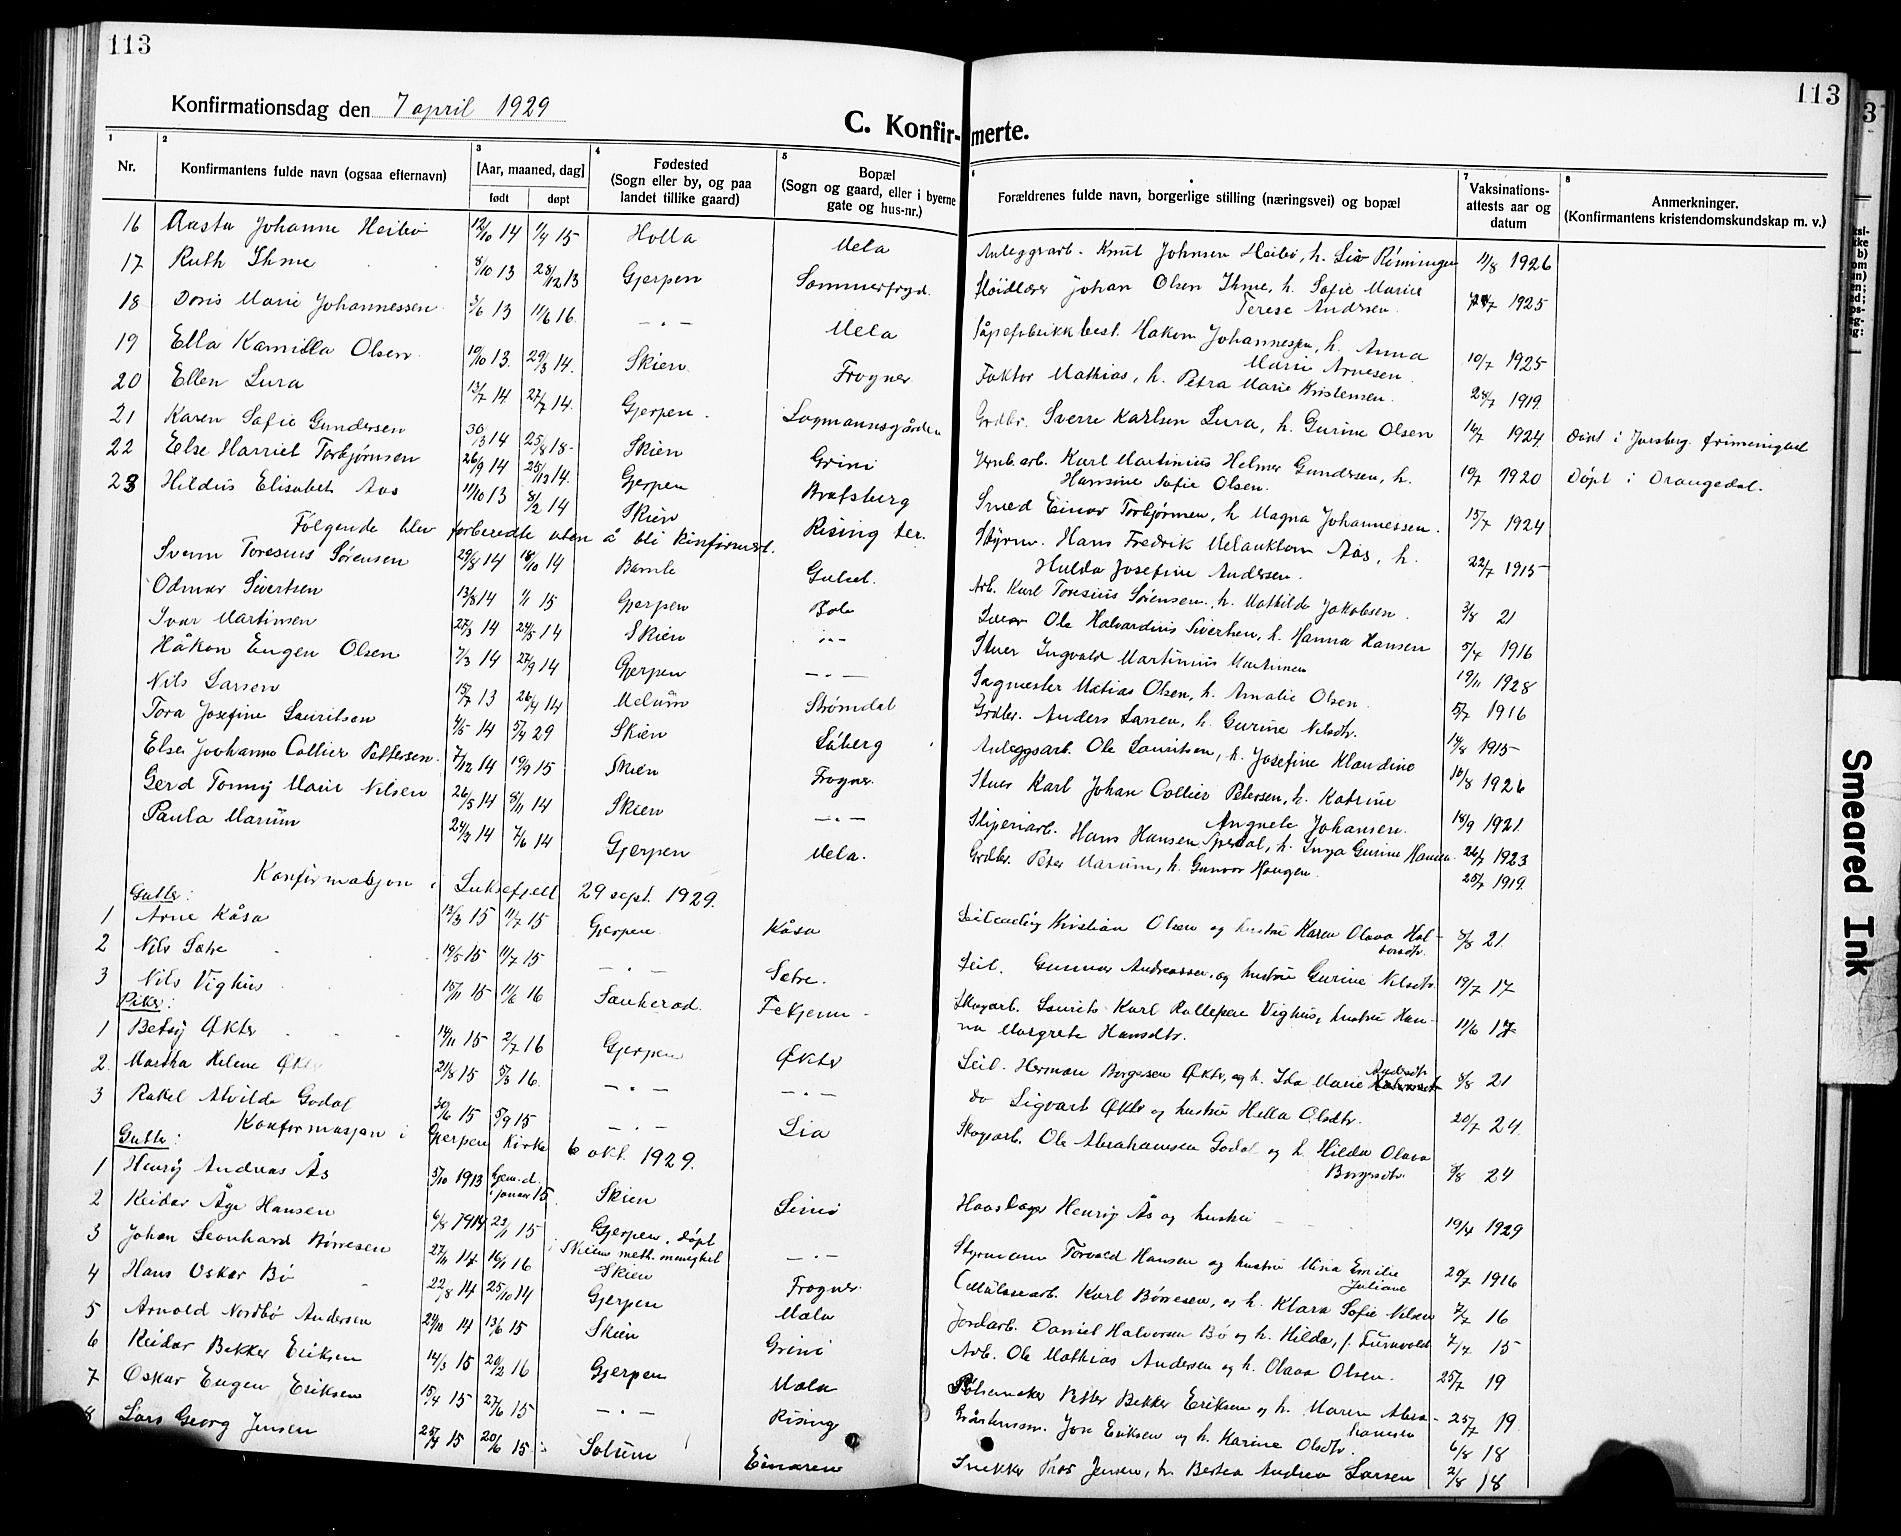 113
113
Konfirmationsdag den 7 april 1929
C. Konfir-merte.
1 2 3 4 5 6 7 8
Nr.
Konfirmantens fulde navn (ogsaa efternavn)
[Aar, maaned, dag]
født døpt
Fødested
(Sogn eller by, og paa
landet tillike gaard)
Bopæl
(Sogn og gaard, eller i byerne
gate og hus-nr.)
Forældrenes fulde navn, borgerlige stilling (næringsvei) og bopæl
Vaksinations-
attests aar og
datum
Anmerkninger.
(Konfirmantens kristendomskundskap m. v.)
16 Aasta Johanne Heibø 12/10 14 1/4 15 Holla Mela Anleggsarb. Knut Johnsen Heibø, h. Liv Rønningen 11/8 1926
17 Ruth Ihme 8/10 13 28/12 13 Gjerpen Sommerfryd Sløidlærer Johan Olsen Ihme, h. Sofie Marie
Terese Andersen 1925
18 Doris Marie Johannessen 3/6 13 11/6 16 — „ — Mela Såpefabrikkbest. Hakon Johannessen, h. Anna
Marie Arnesen 10/7 1925
19 Ella Kamilla Olsen 19/10 13 29/3 14 Skien Frogner Faktor Mathias, h. Petra Marie Kristensen 24/7 1919
20 Ellen Lura 13/7 14 27/7 14 Gjerpen Lagmannsgården Grdbr. Sverre Karlsen Lura, h. Gurine Olsen 16/7 1924 Døpt i frimenighed
21 Karen Sofie Gundersen 30/3 14 25/8 18 Skien Grini Jernb.arb. Karl Martinius Helmer Gundersen, h.
Hansine Sofie Olsen 19/7 1920 Døpt i Drangedal.
22 Else Harriet Torbjørnsen 26/9 14 25/12 14 Gjerpen Bratsberg Smed Einar Torbjørnsen, h. Magna Johannessen 15/7 1924
23 Hildus Elisabet Aas 11/10 13 8/2 14 Skien Rising ter. Styrm. Hans Fredrik Melankton Aas, h.
Hulda Josefine Andersen 22/7 1915
Følgende blev forberedte uten å bli konfirmert.
Svenn Toresius Sørensen 29/8 14 18/10 14 Bamle Gulset Arb. Karl Toresius Sørensen, h. Mathilde Jakobsen 3/8 21
Odmar Sivertsen 13/8 14 1/1 15 Gjerpen Bole Ole Halvardius Sivertsen, h. Hanna Hansen 5/4 1916
Ivar Martinsen 27/3 14 24/5 14 Skien — „ — Stuer Ingvald Martinius Martinsen 19/11 1928
Håkon Eugen Olsen 7/3 14 27/9 14 Gjerpen — „ — Sagmester Matias Olsen, h. Amalie Olsen 5/7 1916
Nils Larsen 15/7 13 26/4 14 Melum Strømdal Grdbr. Anders Larsen, h. Gurine Nilsdtr. 14/8 1915
Tora Josefine Lauritsen 4/5 14 5/4 29 Skien Låberg Anleggsarb. Ole Lauritsen, h. Josefine Klaudine 16/8 1926
Else Johanne Collier Pettersen 7/12 14 19/9 15 Skien Frogner Stuer Karl Johan Collier Petersen, h. Katrine
Angnete Johansen 18/9 1921
Gerd Tonny Marie Nilsen 26/5 14 8/11 14 Skien — „ — Sliperiarb. Hans Hansen Sperdal, h. Inga Gurine Hansen 26/7 1923
Paula Marum 24/3 14 7/6 14 Gjerpen Mela Grdbr. Peter Marum, h. Gunvor Haugen 25/7 1919
Konfirmasjon i Luksefjell 29 sept. 1929.
Gutter:
1 Arne Kåsa 13/3 15 11/7 15 Gjerpen Kåsa Kristian Olsen og hustru Karen Olava Hal-
vorsdtr. 8/8 21
2 Nils Sætre 19/5 15 11/7 15 — „ — Sætre Leil. Gunnar Andreassen og hustru Gurine Nilsdtr. 19/7 17
3 Nils Vighus 15/11 15 11/6 16 Sauherad Fetjenn Skogarb. Laurits Karl Vighus, hustru Han-
na Margrete Hansdtr. 11/6 17
Piker:
1 Betsy Økter 14/11 15 2/7 16 Gjerpen Økter Leil. Herman Borgersen Økter, og h. Ida Marie Andrsdtr. 8/8 21
2 Martha Helene Økter 21/8 15 5/3 16 — „ — — „ — do Sigvart Økter og hustru Hella Olsdtr. 20/7 24
3 Rakel Alvilde Godal 30/6 15 5/9 15 — „ — Lia Skogsarb. Ole Abrahamsen Godal og h. Hilda Olava
Borgersdtr. 9/8 24
Konfirmasjon i Gjerpen Kirke 6 okt. 1929.
Gutter:
1 Henry Andreas Ås 5/10 1913 hjem.d. i januar 15 Skien Limi Henrig Ås og hustru 19/4 1929
2 Reidar Åge Hansen 6/8 1914 23/1 15 Gjerpen, døpt
i Skiens meth. menighet — „ — Styrmann Torvald Hansen og hustru Mina Emilie
Juliane 20/7 1916
3 Johan Leonhard Børresen 27/11 14 16/1 16 Skien Frogner Cellulosearb. Karl Børresen, og h. Klara Sofie Nilsen 7/7 16
4 Hans Oskar Bø 22/8 14 25/10 14 Gjerpen Mæla Jordarb. Daniel Halvorsen Bø og h. Hilda, f. Turnvold 7/7 15
5 Arnold Nordbø Andersen 24/10 14 13/6 15 Skien Grini Arb. Ole Mathias Andersen og h. Olava Olsen 25/7 19
6 Reidar Bekker Eriksen 14/3 15 20/2 16 Gjerpen Mæla Pølsemaker Petter Bekker Eriksen og h. Maren Abra-
hamsen 25/7 19
7 Oskar Eugen Eriksen 15/4 15 27/6 15 — „ — Rising Gråstensm. Jon Eriksen og h. Karine Olsdtr. 6/8 18
8 Lars Georg Jensen 25/4 15 20/6 15 Solum Einaren Snekker Thor Jensen, h. Bertea Andrea Larsen 2/8 18
Smeared Ink